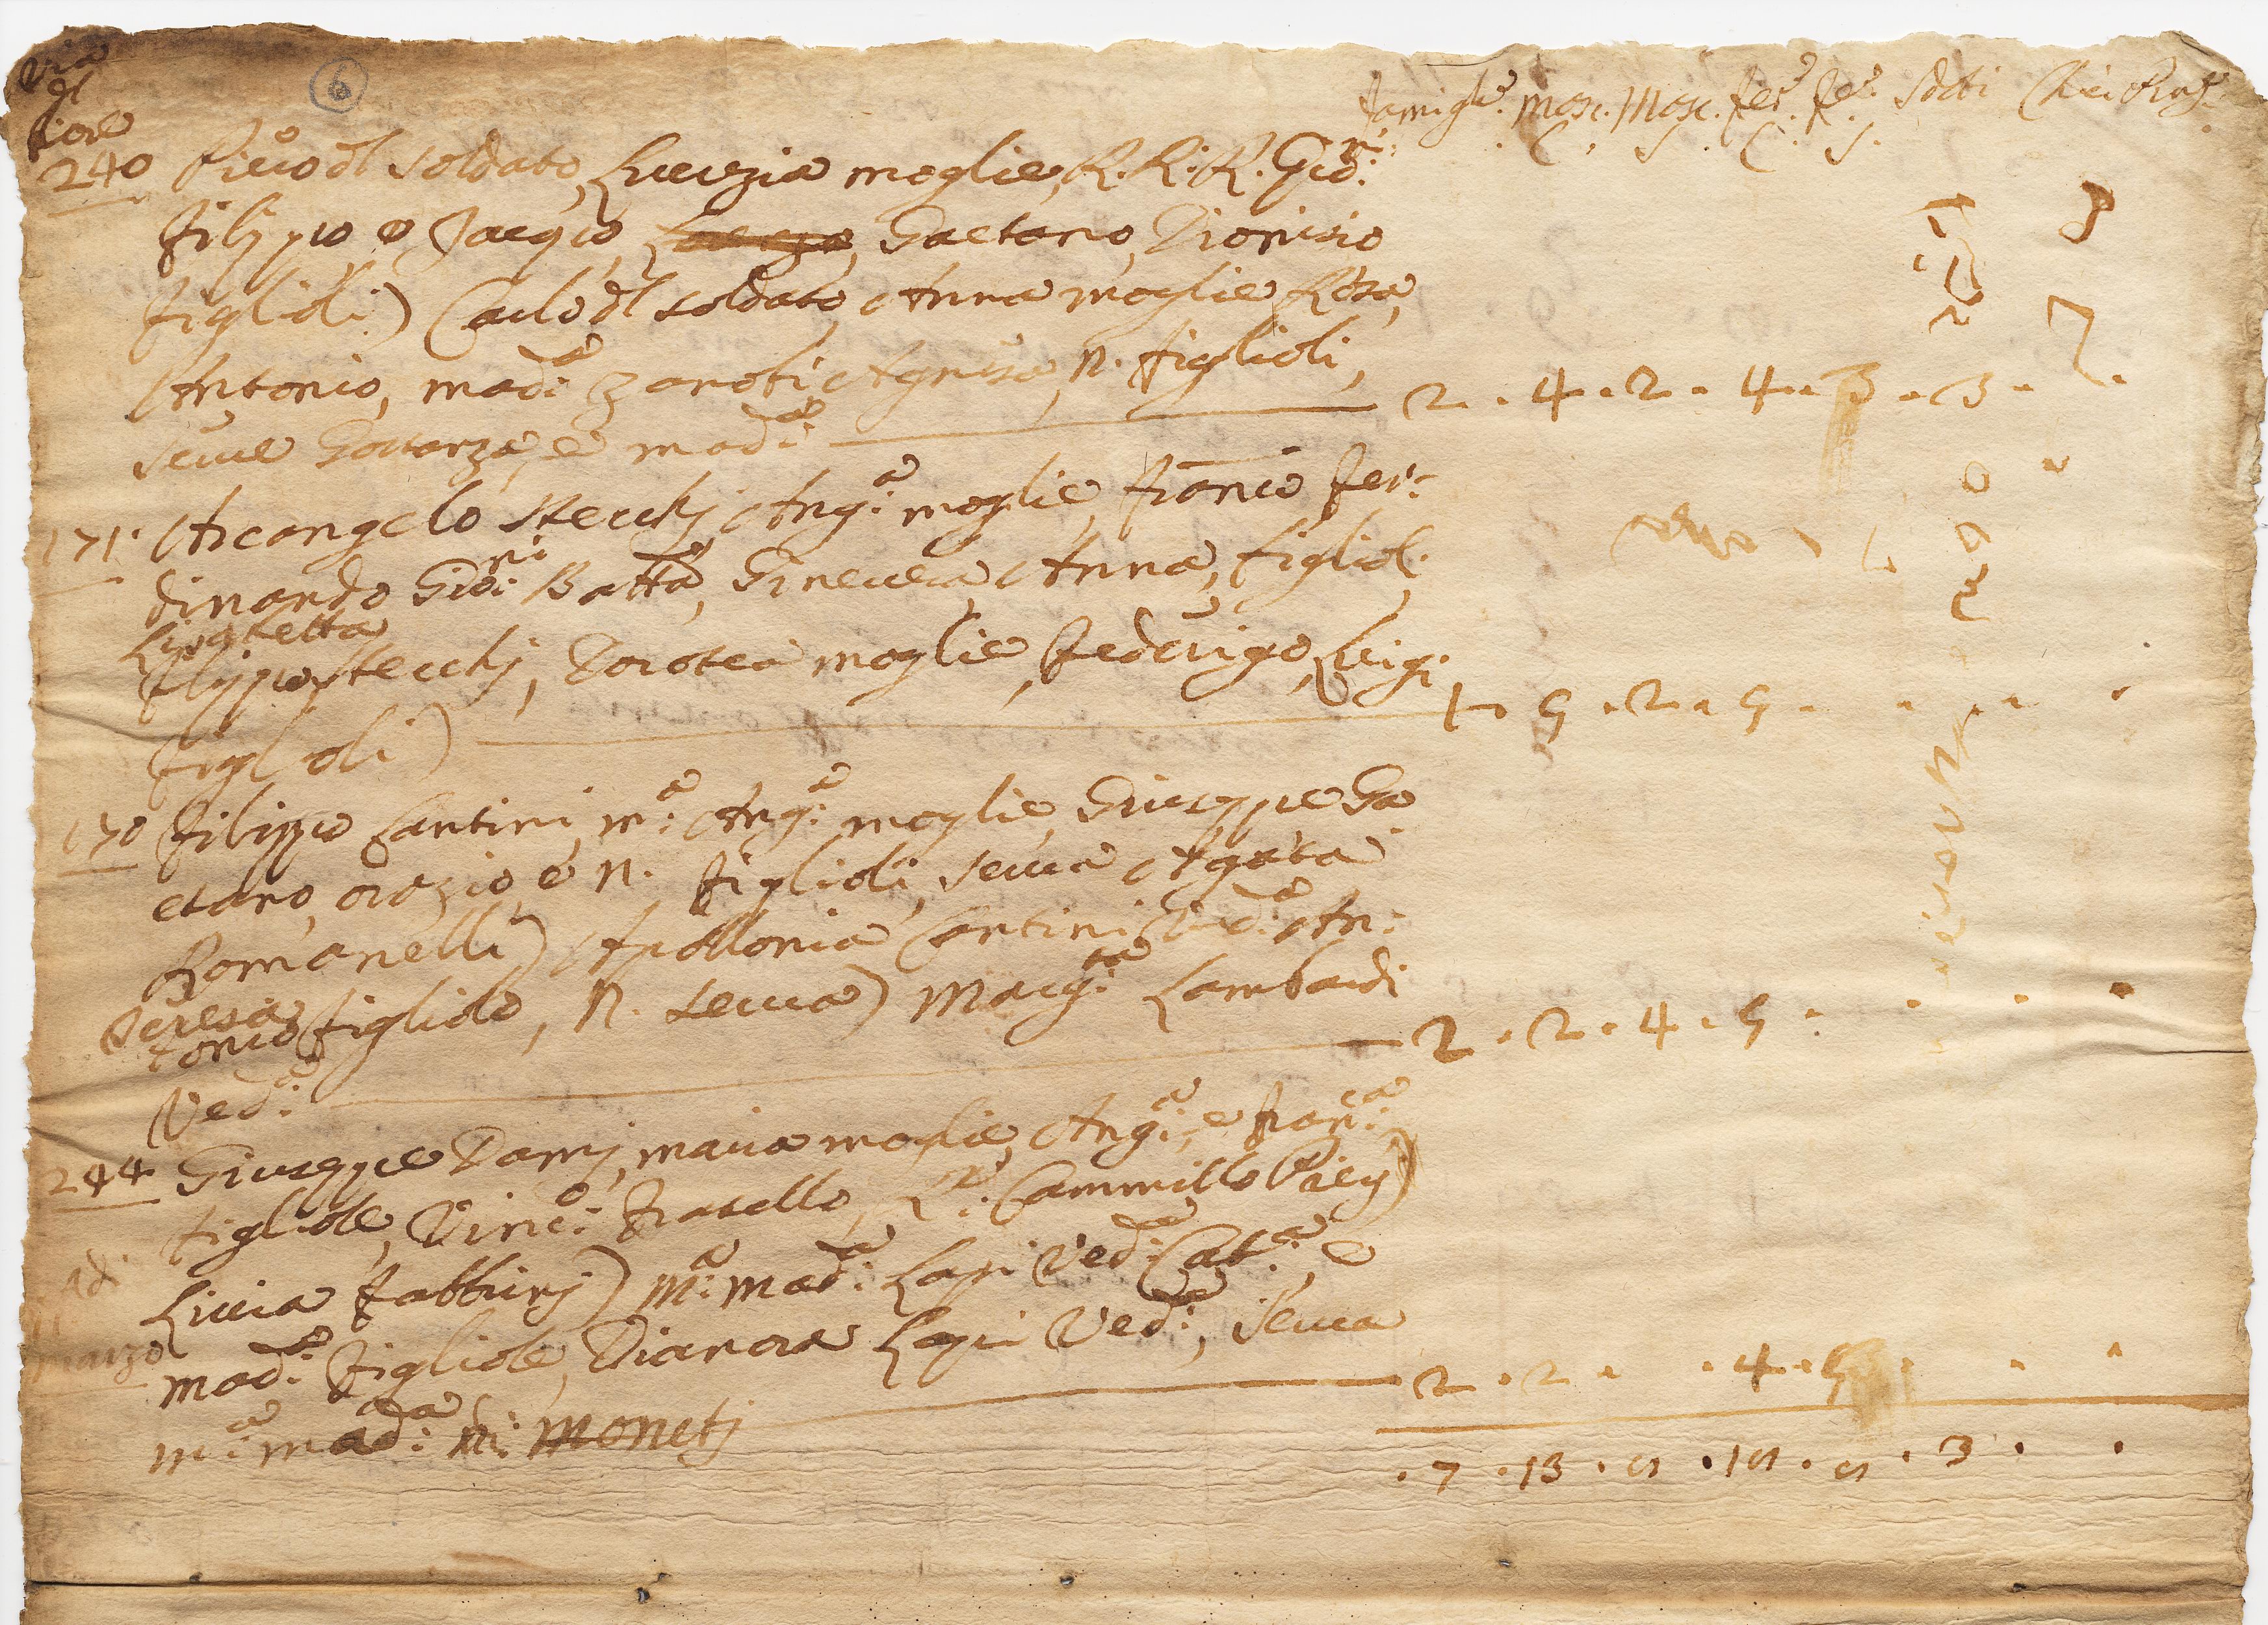 Via
dl
fiore
6
famigle. Masc. Masc. fe. fe. Sdti
. C. S. C. S.
240 Piero dl soldato, Lucrezia moglie, R. R. R. Gio:ni
Filippo, e Jacopo, Gaetano, Dionisio
figlioli) Carlo dl soldato, Anna moglie, Rosa,
Antonio, mad:a Zanobi, Agnisa, N. figlioli,
serve Gostanza, e mad:a 2 . 4 . 2 . 4 . 3 . 3 .
171. Arcangelo Stecchi, Ang:a moglie, Franco Fer:
dinando Gio:ni Batta, Ginevera, Anna, figlioli.
Lisabetta
Filippo Stecchi, Dorotea moglie, Federigo, Luigi
figlioli) 1 . 5 . 2 . 5 .
170 Filippo Santini, m:a Ang:a moglie, Giuseppe Ga
etano, Orazio, e N. figlioli, serva Agata
Romanelli) Apollonia Santini Ved:a An:
Teresa
tonio figliolo, N. serva) Marg:ta Lambardi
Ved:a 2 . 2 . 4 . 5 .
244 Giuseppe Dami, maria moglie, Ang:a, e Fran:ca
figliole, Vinc:o fratello, Cammillo
Livia Fabbrini) M:a Mad:a Lapi Ved:a Cat:a, e
Adi
11
marzo
mad:a figliole, Dianora Lapi Ved:a, serva
m:a mad:a Monetj 2 . 2 . . 4 . 5 .
. 7 . 13 . 5 . 15 . 5 . 3 . .